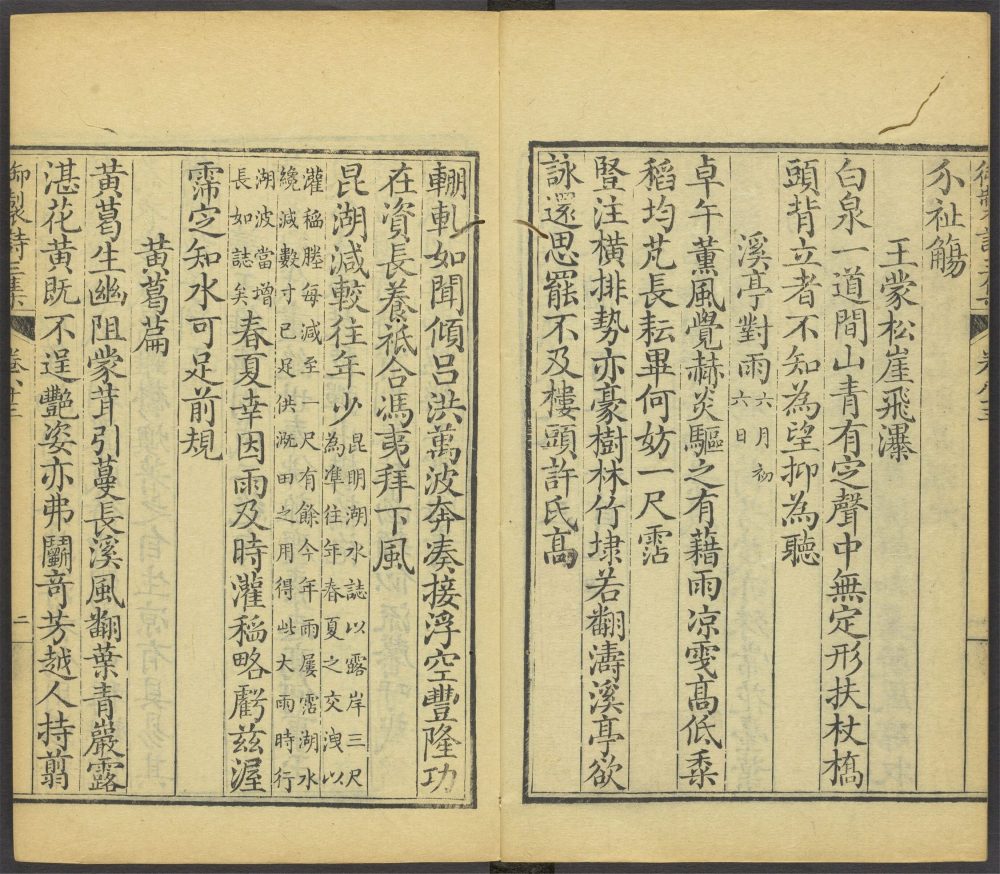 介祉觴
王蒙松崖飛瀑
白泉一道間山青有㝎聲中無定形扶杖橋
頭背立者不知為望抑為聽
溪亭對雨六月初
六日
卓午薰風覺赫炎驅之有藉雨凉雯高低黍
稻均芃長耘畢何妨一尺霑
豎注橫排勢亦豪樹林竹埭若翻濤溪亭欲
詠還思罷不及樓頭許氏高
輣軋如聞傾吕洪萬波奔凑接浮空豐隆功
在資長養祇合馮夷拜下風
昆湖減較往年少昆明湖水誌以露岸三尺
為準往年春夏之交洩以
灌稻塍每減至一尺有餘今年雨屢霑湖水
纔減數寸已足供溉田之用得此大雨時行
湖波當增
長如誌矣春夏幸因雨及時灌稻略虧兹渥
霈㝎知水可足前規
黃葛篇
黃葛生幽阻蒙茸引蔓長溪風翻葉青嚴露
湛花黃既不逞艷姿亦弗鬭竒芳越人持翦
御製詩三集
卷八十三
二